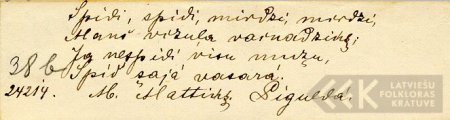 Spīdi, spīdi, mirdzi, mirdzi,
Manu vizuļa vaiņadziņ;
Ja nespīdi visu mužu,
Spīd šajā vasarā.
38b
24214. M. Mattin Siguldā.
LATVIEŠU
FOLKLORAS
KRATUVE